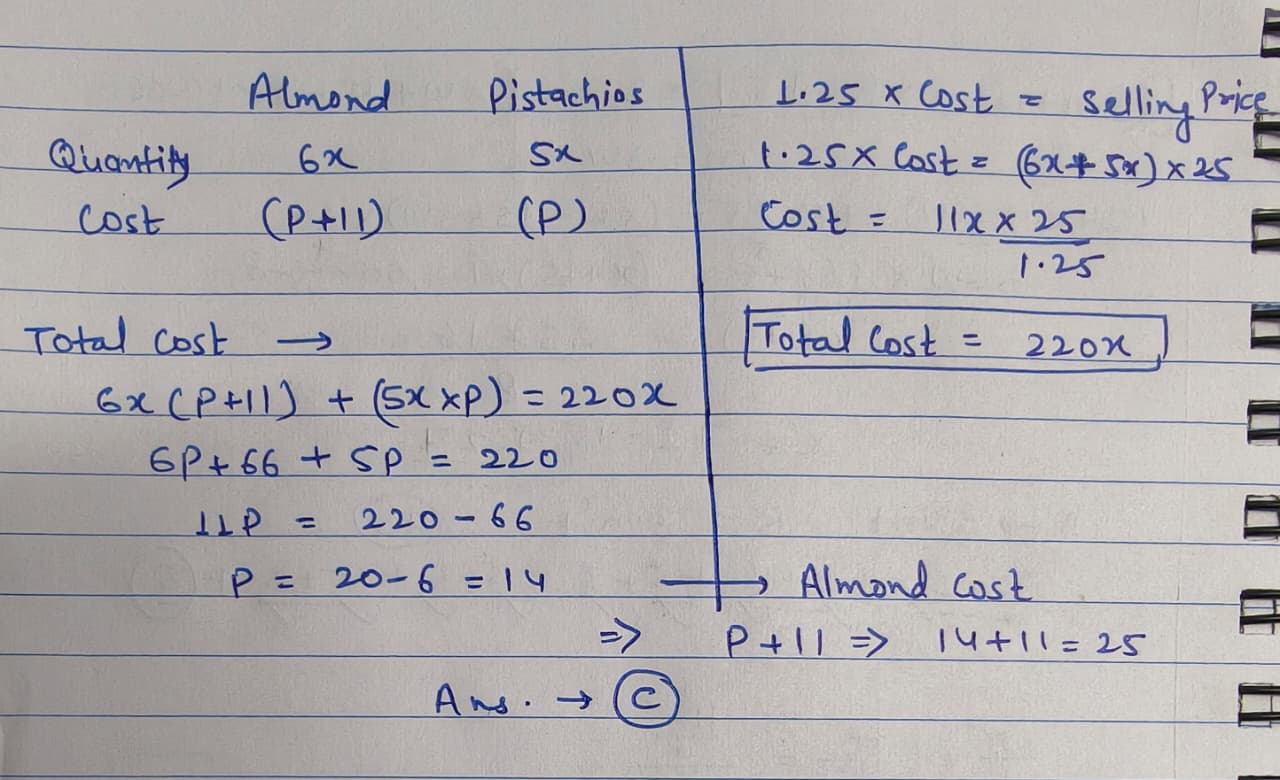 Almond Pistachios
Quantity 6x 5x
Cost (P+11) (P)
Total Cost →
6x (P+11) + (5x x P) = 220x
6P + 66 + 5P = 220
11P = 220 - 66
P = 20 - 6 = 14
1.25 x Cost = Selling Price
1.25 x Cost = (6x + 5x) x 25
Cost = 11x x 25
1.25
Total Cost = 220x
→ Almond Cost
=> P + 11 => 14 + 11 = 25
Ans. → C